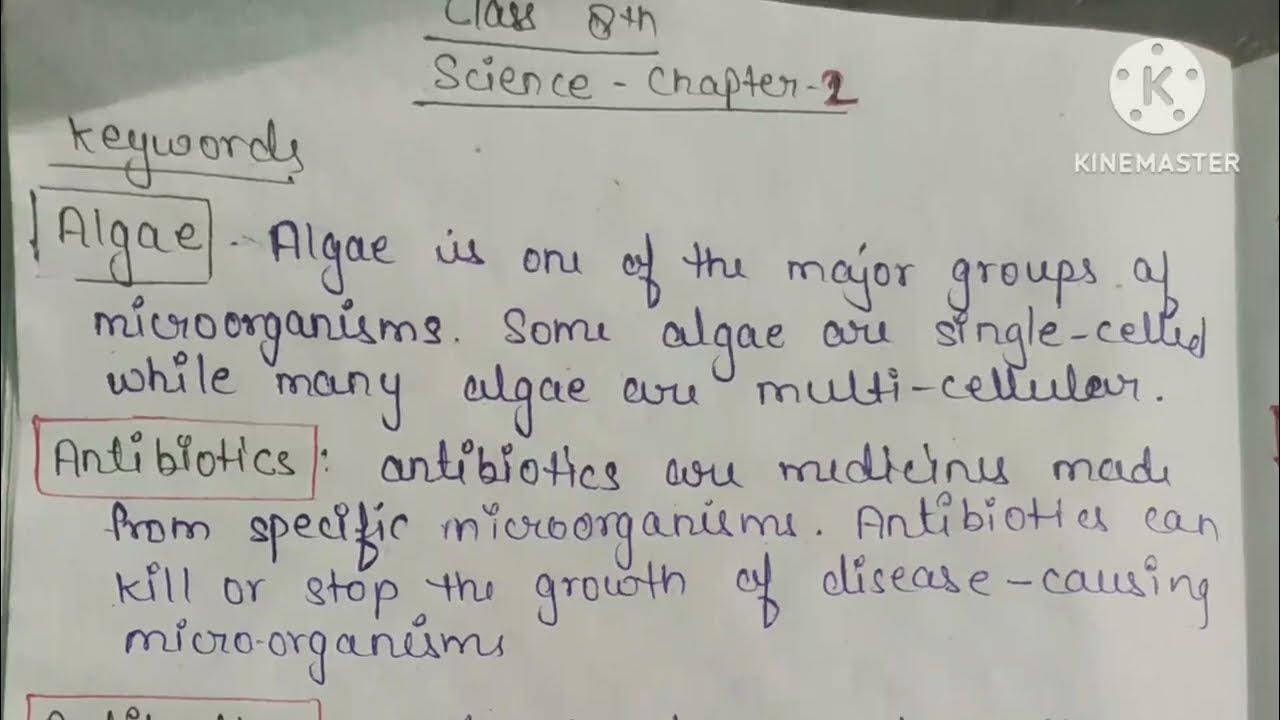 Class 8th
Science - Chapter-2
KINEMASTER
Keywords
Algae - Algae is one of the major groups of
microorganisms. Some algae are single-celled
while many algae are multi-cellular.
Antibiotics : antibiotics are medicines made
from specific microorganisms. Antibiotics can
kill or stop the growth of disease-causing
micro-organisms